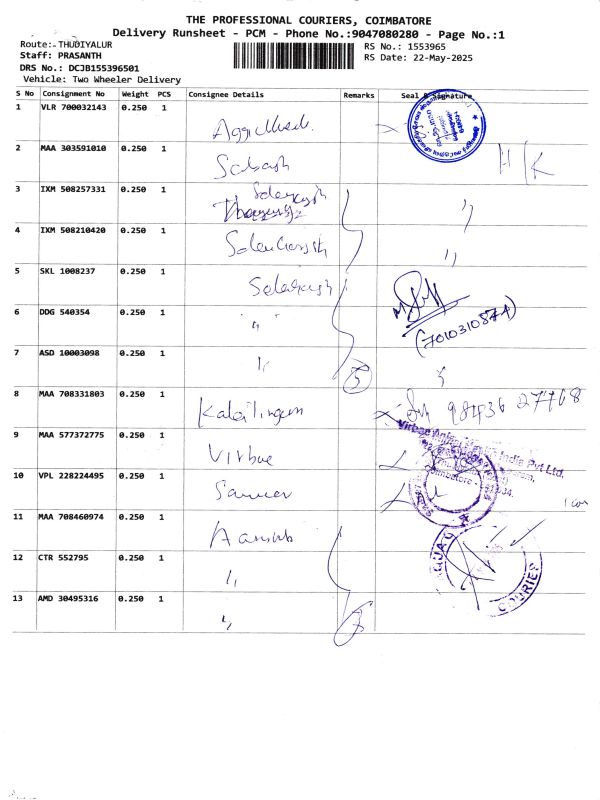 THE PROFESSIONAL COURIERS, COIMBATORE
Delivery Runsheet - PCM - Phone No.:9047080280 - Page No.:1
Route:- THUDIYALUR
RS No.: 1553965
Staff: PRASANTH
RS Date: 22-May-2025
DRS No.: DCJB155396501
Vehicle: Two Wheeler Delivery
S No Consignment No Weight PCS Consignee Details Remarks Seal & Signature
1 VLR 700032143 0.250 1
2 MAA 303591010 0.250 1
H/K
3 IXM 508257331 0.250 1
"
4 IXM 508210420 0.250 1
"
5 SKL 1008237 0.250 1
6 DDG 540354 0.250 1 "
(7010310874)
7 ASD 10003098 0.250 1 " 5
8 MAA 708331803 0.250 1 Kalailingam 98436 27768
9 MAA 577372775 0.250 1 Virbac
Virbac Animal Health India Pvt Ltd.
10 VPL 228224495 0.250 1
Coimbatore -
11 MAA 708460974 0.250 1
12 CTR 552795 0.250 1 "
COURIER
13 AMD 30495316 0.250 1 "